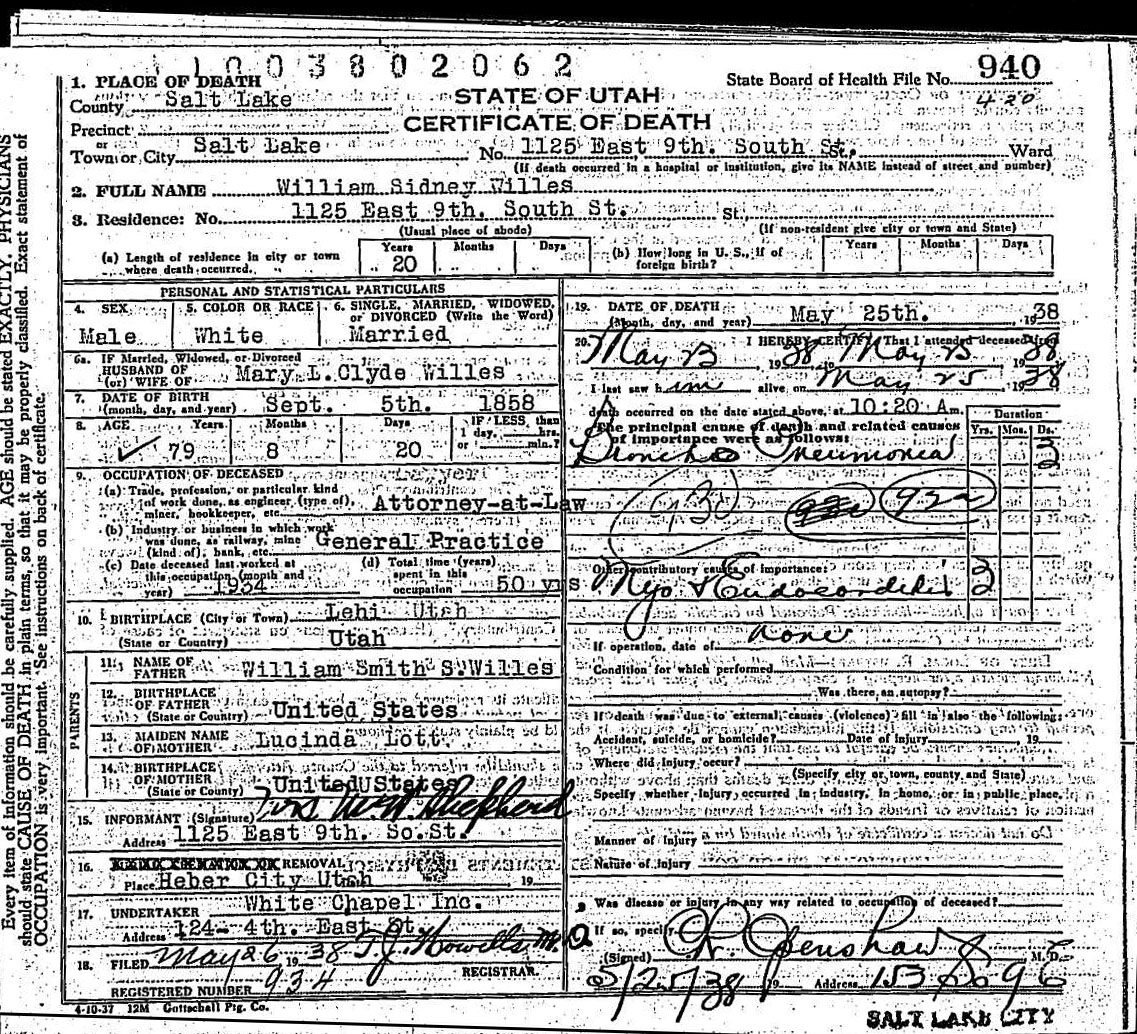 1003802062
1. PLACE OF DEATH
State Board of Health File No. 940
County Salt Lake
STATE OF UTAH
420
CERTIFICATE OF DEATH
Precinct
or
Town or City Salt Lake No. 1125 East 9th. South St. St., Ward
(If death occurred in a hospital or institution, give its NAME instead of street and number)
2. FULL NAME William Sidney Willes
3. Residence: No. 1125 East 9th. South St. St.,
(Usual place of abode) (If non-resident give city or town and State)
(a) Length of residence in city or town where death occurred. Years 20 Months Days
(b) How long in U. S., if of foreign birth? Years Months Days
PERSONAL AND STATISTICAL PARTICULARS
4. SEX Male
5. COLOR OR RACE White
6. SINGLE, MARRIED, WIDOWED, or DIVORCED (Write the Word) Married
6a. IF Married, Widowed, or Divorced
HUSBAND OF
(or) WIFE OF Mary L.Clyde Willes
7. DATE OF BIRTH
(month, day, and year) Sept. 5th. 1858
8. AGE Years 79 Months 8 Days 20 IF LESS than 1 day, hrs. or min.?
9. OCCUPATION OF DECEASED Lawyer
(a) Trade, profession, or particular kind of work done, as engineer (type of), miner, bookkeeper, etc. Attorney-at-Law
(b) Industry or business in which work was done, as railway, mine (kind of), bank, etc. General Practice
(c) Date deceased last worked at this occupation (month and year) 1934
(d) Total time (years) spent in this occupation 50 yrs
10. BIRTHPLACE (City or Town) Lehi Utah
(State or Country) Utah
PARENTS
11. NAME OF FATHER William Smith S.Willes
12. BIRTHPLACE OF FATHER (State or Country) United States
13. MAIDEN NAME OF MOTHER Lucinda Lott
14. BIRTHPLACE OF MOTHER (State or Country) United States
15. INFORMANT (Signature) Mrs W.W. Shepherd
Address 1125 East 9th. So.St.
16. REMOVAL
Place Heber City Utah 19
17. UNDERTAKER White Chapel Inc.
Address 124-4th. East St.
18. FILED May 26 1938 T.J. Howells M.D.
REGISTRAR.
REGISTERED NUMBER 934
4-10-37 12M Gottschall Ptg. Co.
19. DATE OF DEATH
(Month, day, and year) May 25th. 1938
20. I HEREBY CERTIFY, That I attended deceased from
May 23 1938 to May 25 1938
I last saw him alive on May 25 1938
death occurred on the date stated above, at 10:20 Am.
The principal cause of death and related causes of importance were as follows:
Duration
Yrs. Mos. Ds.
Broncho Pneumonia 3
92a
Other contributory causes of importance:
Myo & Endocarditis
If operation, date of none
Condition for which performed
Was there an autopsy?
If death was due to external causes (violence) fill in also the following:
Accident, suicide, or homicide? Date of injury 19
Where did injury occur?
(Specify city or town, county and State)
Specify whether injury occurred in industry, in home, or in public place.
Manner of injury
Nature of injury
Was disease or injury in any way related to occupation of deceased?
If so, specify
(Signed) R Openshaw M. D.
5/25/38 19 Address 153 So 9 E
SALT LAKE CITY
Every item of information should be carefully supplied. AGE should be stated EXACTLY. PHYSICIANS
should state CAUSE OF DEATH in plain terms, so that it may be properly classified. Exact statement of
OCCUPATION is very important. See instructions on back of certificate.